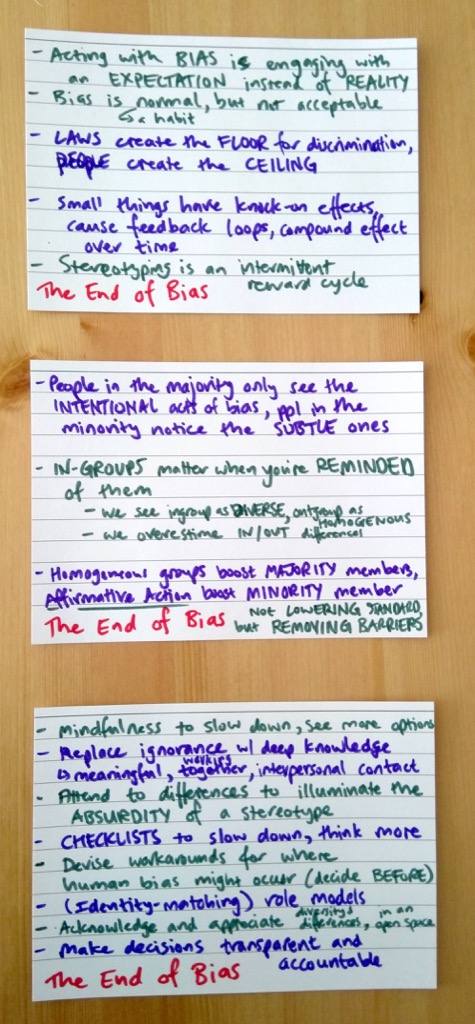 - Acting with BIAS is engaging with
an EXPECTATION instead of REALITY
- Bias is normal, but not acceptable
↳ a habit
- LAWS create the FLOOR for discrimination,
PEOPLE create the CEILING
- Small things have knock-on effects,
cause feedback loops, compound effect
over time
- Stereotyping is an intermittent
reward cycle
The End of Bias
- People in the majority only see the
INTENTIONAL acts of bias, ppl in the
minority notice the SUBTLE ones
- IN-GROUPS matter when you're REMINDED
of them
- we see ingroup as DIVERSE, outgroup as
HOMOGENOUS
- we overestime IN/OUT differences
- Homogeneous groups boost MAJORITY members,
Affirmative Action boost MINORITY member
NOT LOWERING STANDARD,
but REMOVING BARRIERS
The End of Bias
- Mindfulness to slow down, see more options
- Replace ignorance w/ deep knowledge
↳ meaningful, working together, interpersonal contact
- Attend to differences to illuminate the
ABSURDITY of a stereotype
- CHECKLISTS to slow down, think more
- Devise workarounds for where
human bias might occur (decide BEFORE)
- (Identity-matching) role models
- Acknowledge and appreciate diversity & differences, in an open space
- Make decisions transparent and
accountable
The End of Bias